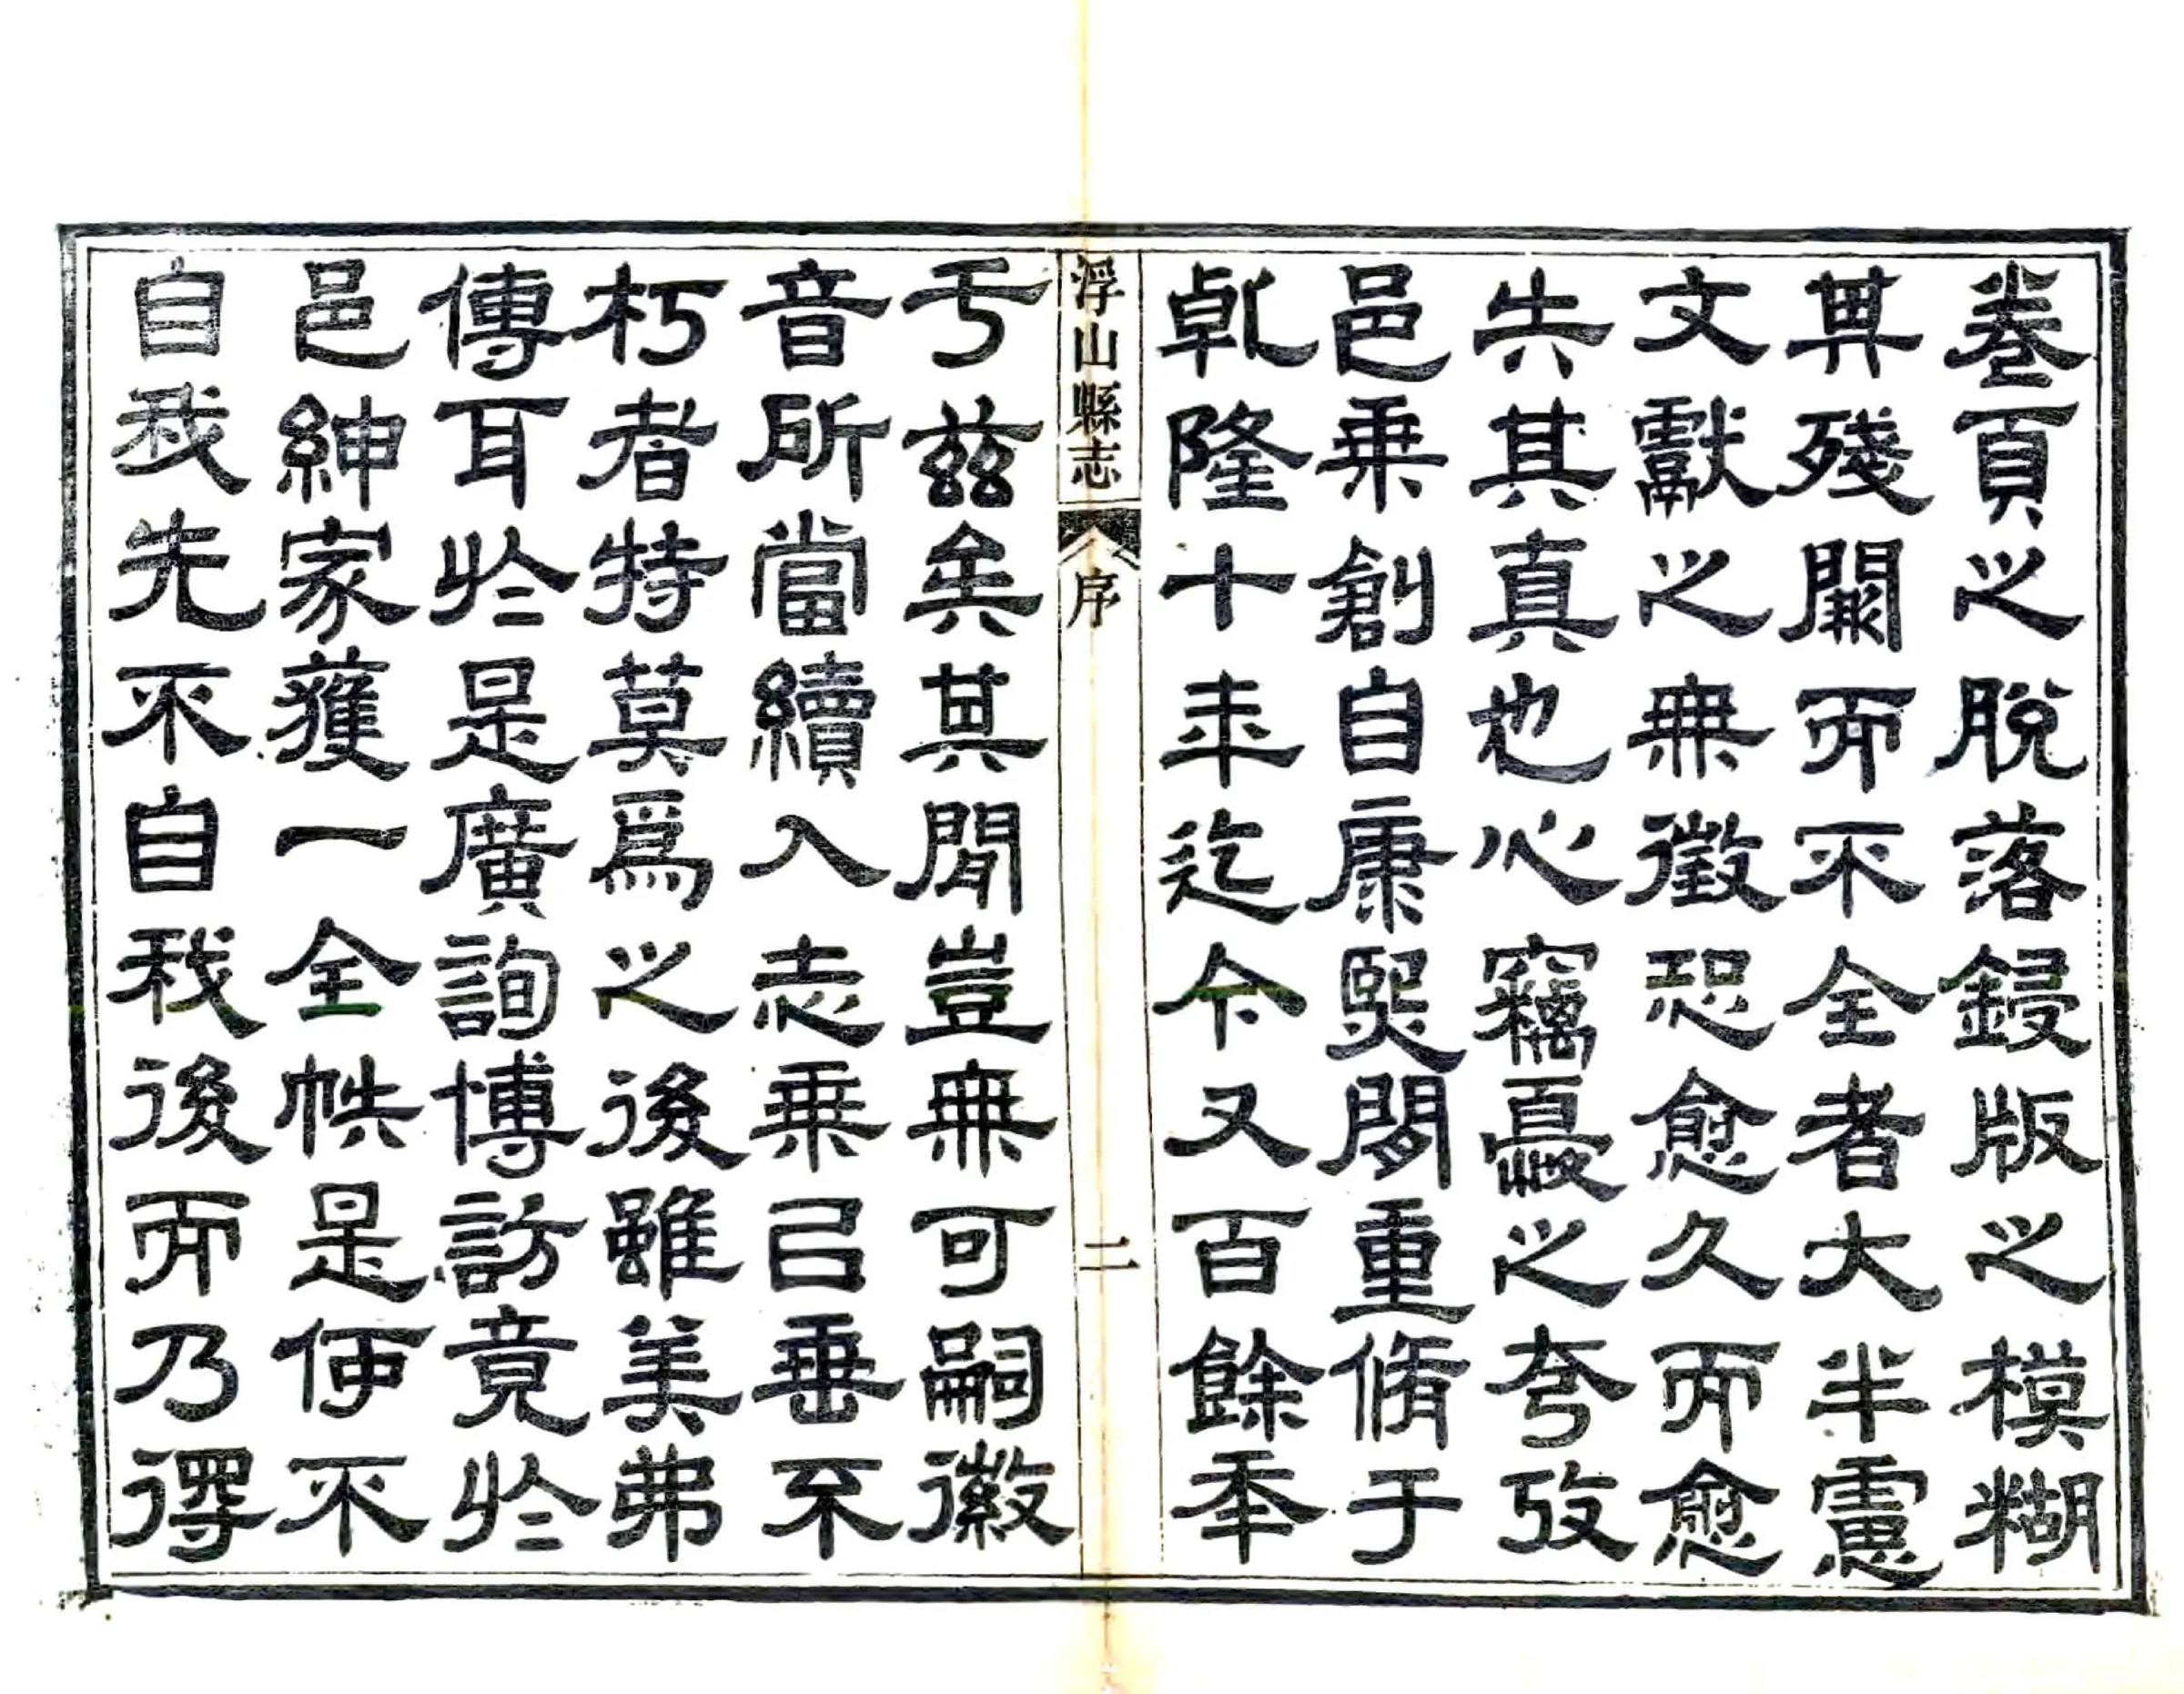 卷頁之脫落鋟版之模糊
其殘闕而不全者大半慮
文獻之無徵恐愈久而愈
失其真也心竊憂之夸攷
邑乘創自康熙間重脩于
乾隆十年迄今又百餘年
浮山縣志 序 二
于兹矣其間豈無可嗣徽
音所當續入志乘㠯垂不
朽者特莫爲之後雖美弗
傳耳於是廣詢博訪竟於
邑紳家獲一全帙是使不
自我先不自我後而乃得